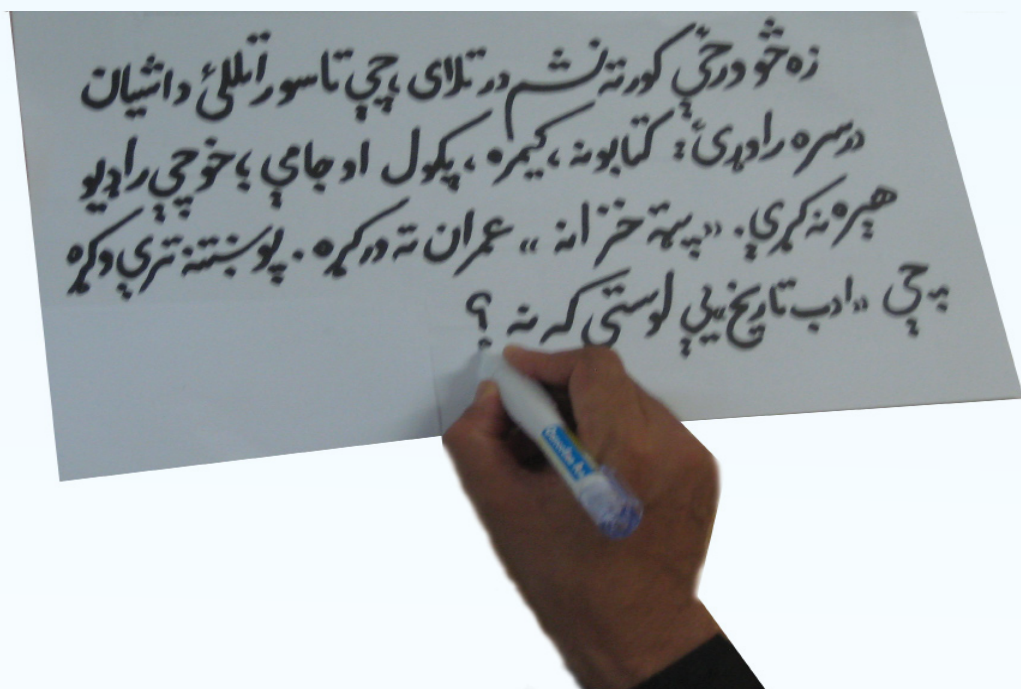 زه خو درځې کورته نشم درتلای، چې تاسو راتللئ دا شیان
درسره راوړئ: کتابونه، کیمره، پکول او جامې؛ خو چې راډیو
هیره نه کړې. «پټه خزانه» عمران ته ورکړه. پوښتنه ترې وکړه
په چې «ادب تاریخ» یې لوستی که نه؟